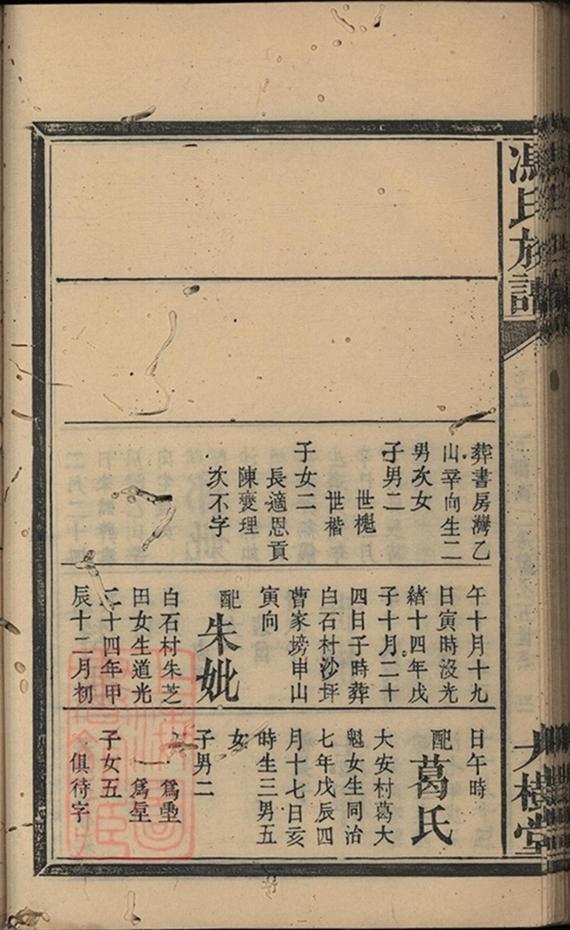 馮氏族譜
大樹堂
葬書房灣乙
山辛向生二
男次女
子男二
世槐
世楷
子女二
長適恩貢
陳變理
次不字
午十月十九
日寅時沒光
緒十四年戊
子十月二十
四日子時葬
白石村沙坪
曹家塝申山
寅向
配朱妣
白石村朱芝
田女生道光
二十四年甲
辰十二月初
日午時
配葛氏
大安村葛大
魁女生同治
七年戊辰四
月十七日亥
時生三男五
女
子男二
一爲垔
一爲垕
子女五
俱待字